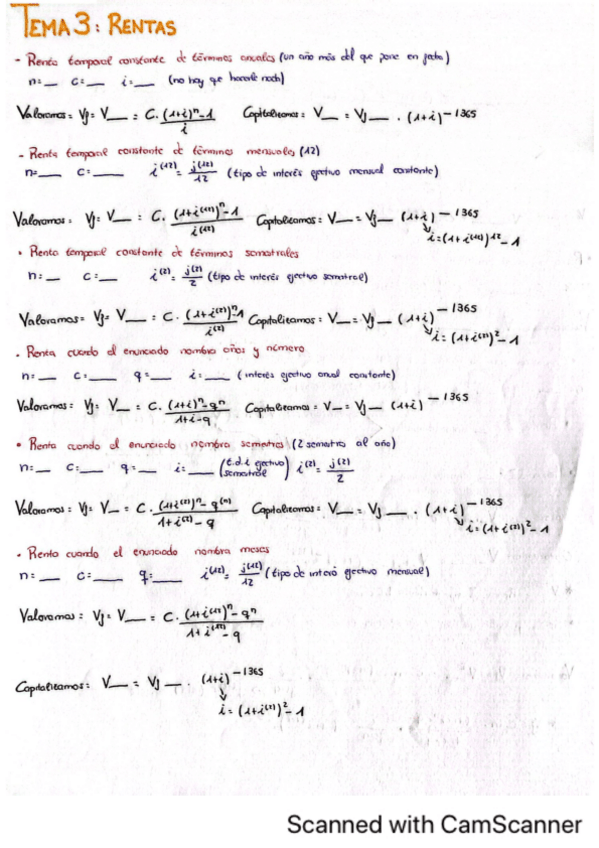 TEMA 3: RENTAS
- Renta temporal constante de términos anuales (un año más del que pone en fecha)
n=__ c=__ i=__ (no hay que hacerle nada)
Valoramos = Vf = V__ = C. (1+i)^n - 1 / i Capitalizamos: V__ = Vf__ . (1+i)^- /365
- Renta temporal constante de términos mensuales (12)
n=__ c=__ i^(12) = j^(12) / 12 (tipo de interés efectivo mensual constante)
Valoramos: Vf = V__ = C. (1+i^(12))^n - 1 / i^(12) Capitalizamos: V__ = Vf__ (1+i)^- /365
i = (1+i^(12))^12 - 1
• Renta temporal constante de términos semestrales
n=__ c=__ i^(2) = j^(2) / 2 (tipo de interés efectivo semestral)
Valoramos = Vf = V__ = C. (1+i^(2))^n - 1 / i^(2) Capitalizamos: V__ = Vf__ (1+i)^- /365
i = (1+i^(2))^2 - 1
. Renta cuando el enunciado nombra años y número
n=__ c=__ q=__ i=__ (interés efectivo anual constante)
Valoramos = Vf = V__ = C. (1+i)^n - q^n / 1+i-q Capitalizamos: V__ = Vf__ (1+i)^- /365
• Renta cuando el enunciado nombra semestres (2 semestres al año)
n=__ c=__ q=__ i=__ (t.d.i efectivo semestral) i^(2) = j^(2) / 2
Valoramos: Vf = V__ = C. (1+i^(2))^n - q^(n) / 1+i^(2) - q Capitalizamos: V__ = Vf__ . (1+i)^- /365
i = (1+i^(2))^2 - 1
. Renta cuando el enunciado nombra meses
n=__ c=__ q=__ i^(12) = j^(12) / 12 (tipo de interés efectivo mensual)
Valoramos: Vf = V__ = C. (1+i^(12))^n - q^n / 1+i^(12) - q
Capitalizamos: V__ = Vf__ . (1+i)^- /365
i = (1+i^(2))^2 - 1
Scanned with CamScanner